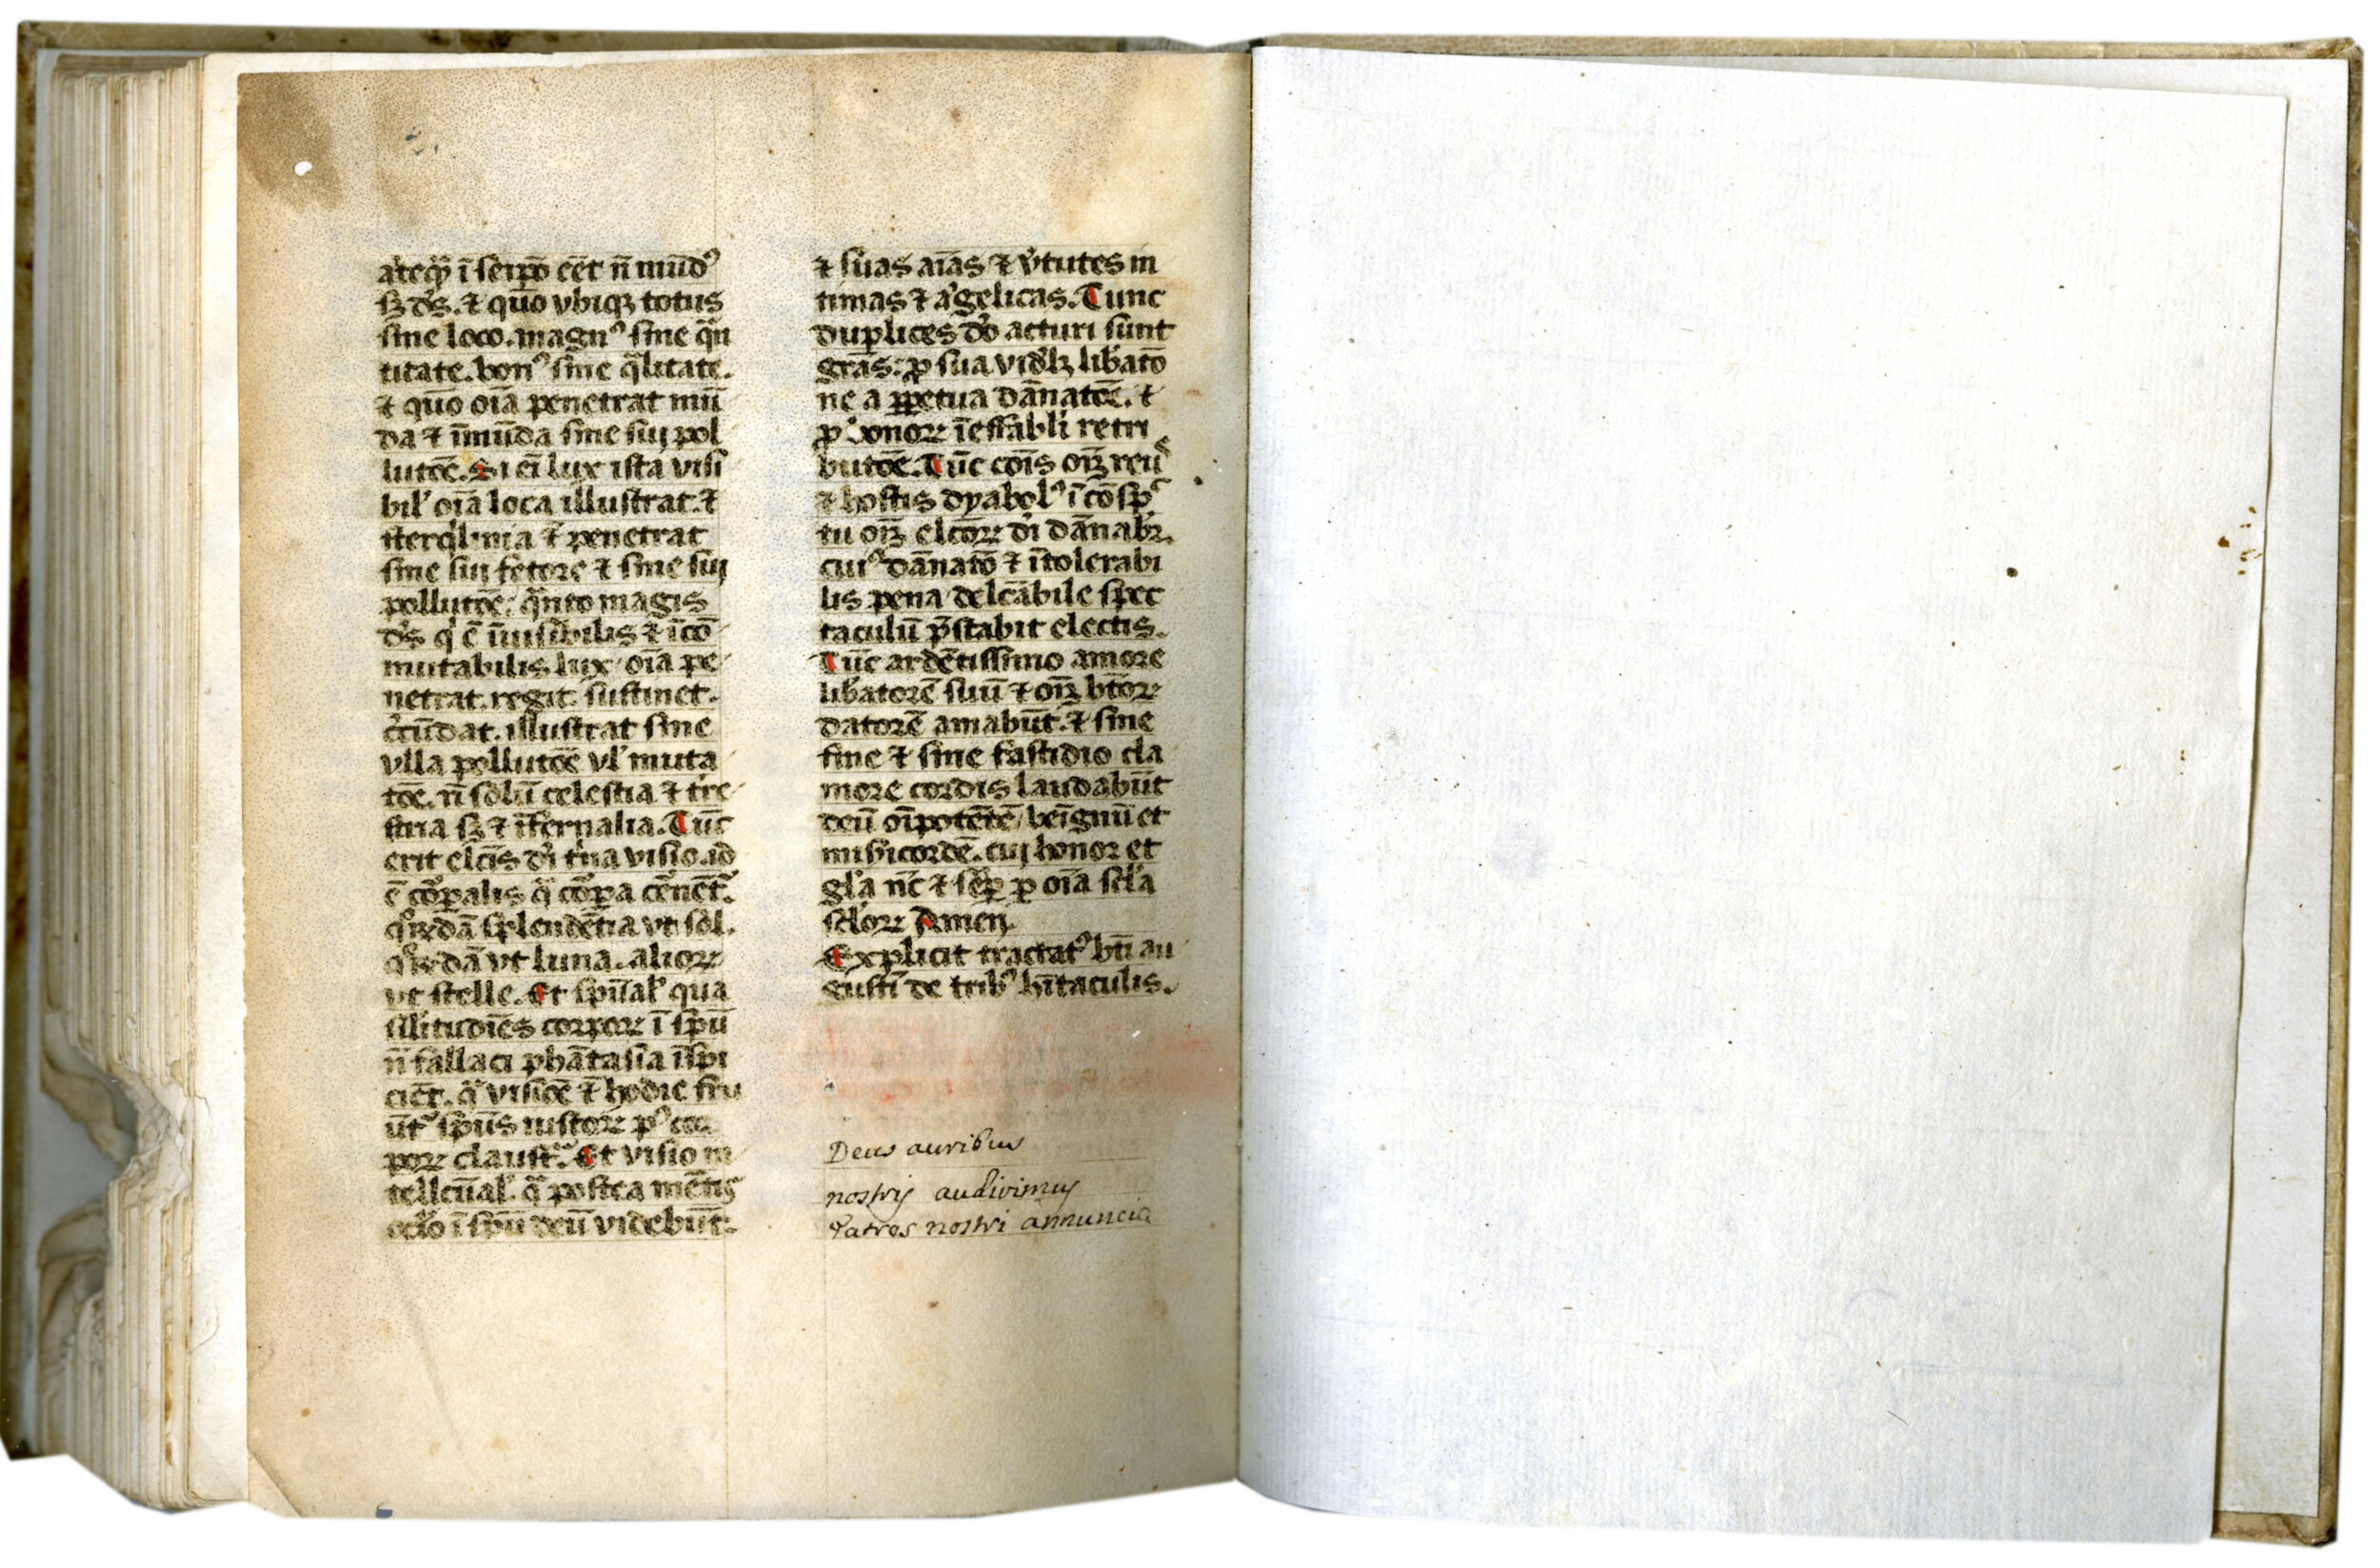 antequā ī seip̄o cēt n̄ mūdꝰ
sꝫ dˢ̄. ⁊ quō vbiqꝫ totus
sine loco. magnꝰ sine qᷓn
titate. bonꝰ sine qᷓlitate.
⁊ quō oīa penetrat mū
da ⁊ īmūda sine sui pol
lutōē. Si eī lux ista visi
bil' oīa loca illustrat. ⁊
sterq̇linia ⁊ penetrat
sine sui fetore ⁊ sine sui
pollutōe; qᷓnto magis
dˢ̄ q' ē īuisibilis ⁊ īcō
mutabilis lux / oīa pe
netrat. regit. sustinet.
c̓cūdat. illustrat sine
vlla pollutōē vl' muta
tōe. n̄ solū celestia ⁊ tr̄e
stria sꝫ ⁊ īfernalia. Tūc
erit elc̄is dī t̓na visio. id
ē corꝑalis q̄ corꝑa cernēt᷑.
qͦꝝdā splendētia vt sol.
qͦꝝdā vt luna. alioꝝ
vt stelle. Et spūal' qua
sil'itudīes corpoꝝ ī spū
n̄ fallaci phātasia īspi
ciēt. qᷓ visiōē ⁊ hodie fru
ūt᷑ spūs iustoꝝ pꝰ cor
poꝝ claustᷓ. Et visio in
tellc̄ual'. qᷓ postea mētis
oc̄lo ī spū deū videbūt.
⁊ suas aīas ⁊ v̓tutes in
timas ⁊ āgelicas. Tunc
duplices dō acturi sunt
grās: ꝓ sua vidꝫ lib̄atō
ne a ꝑpetua dānatōē. ⁊
ꝓ honoꝝ īeffabli retri
butōē. Tūc cōīs oīꝫ reus
⁊ hostis dyabolꝰ ī cōspc̄
tu oīꝫ elc̄oꝝ dī dānabꝛ.
cuiꝰ dānatō ⁊ ītolerabi
lis pena delc̄abile spec
taculū p̄stabit electis.
Tūc ardētissimo amore
lib̄atorē suū ⁊ oīꝫ bōoꝝ
datorē amabūt. ⁊ sine
fine ⁊ sine fastidio cla
more cordis laudabūt
deū oīpotētē / beīgnū et
misīcordē. cui honor et
gl'a nc̄ ⁊ sēꝑ ꝑ oīa sc̄l'a
sc̄l'oꝝ Amen.
Explicit tractatꝰ btī au
gustī de tribꝰ hītaculis.
Deus auribus
nostris audivimus
Patres nostri annuncia